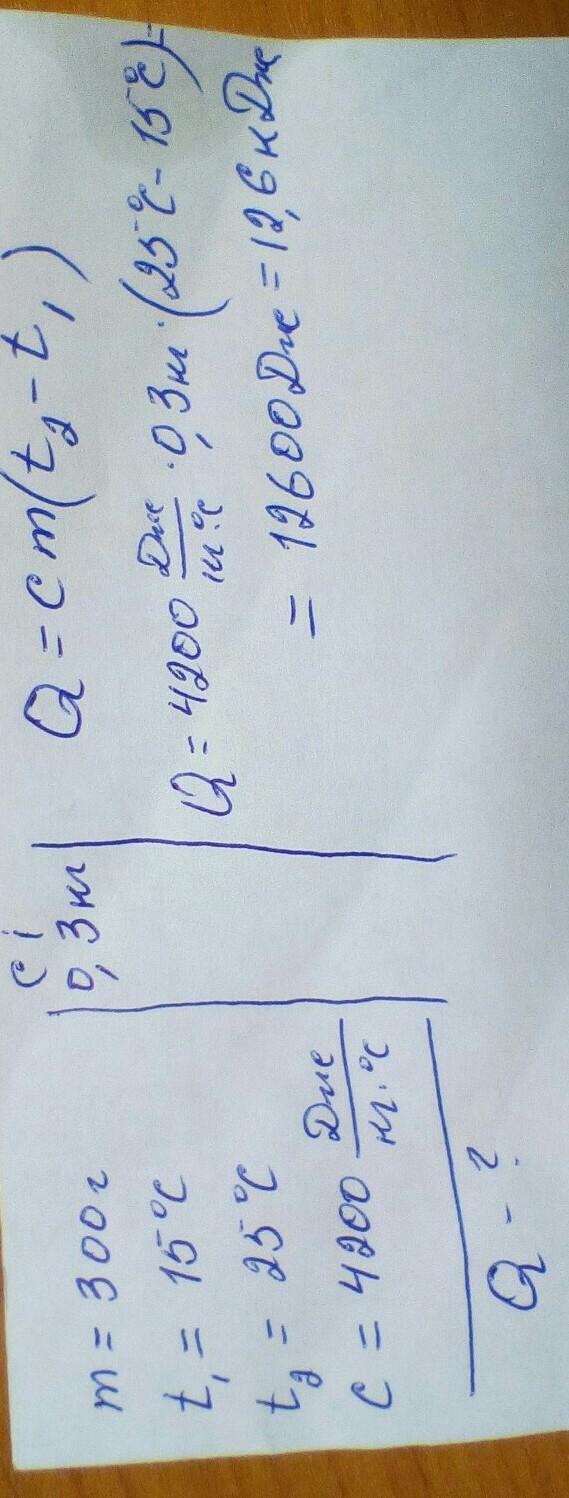 m = 300г
t₁ = 15°C
t₂ = 25°C
c = 4200 Дж/кг·°C
Q - ?
Сі
0,3кг
Q = cm(t₂ - t₁)
Q = 4200 Дж/кг·°C · 0,3кг · (25°C - 15°C) =
= 12600Дж = 12,6кДж